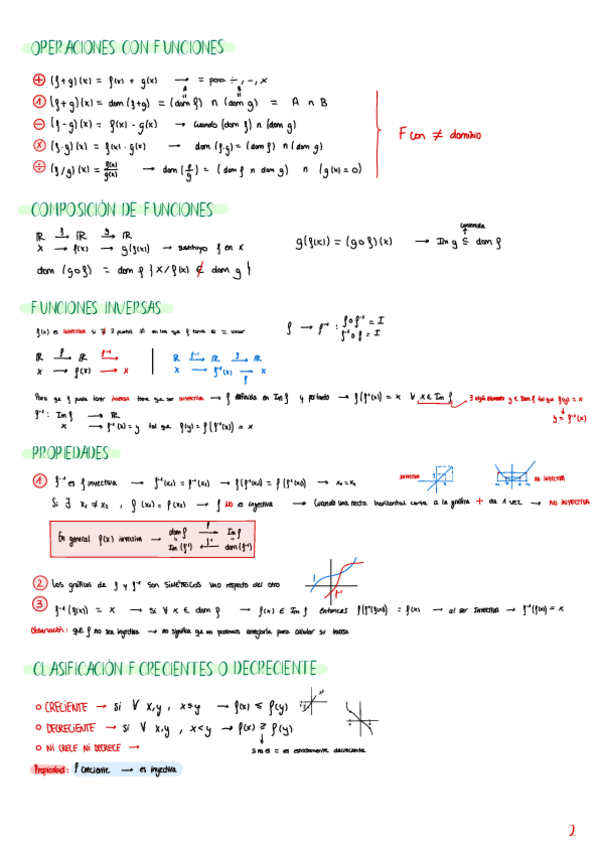 OPERACIONES CON FUNCIONES
⊕ (f+g)(x) = f(x) + g(x) → = para ÷, -, x
① (f+g)(x) = dom (f+g) = (dom f) ∩ (dom g) = A ∩ B
⊖ (f-g)(x) = f(x) - g(x) → cuando (dom f) ∩ (dom g)
ⓧ (f·g)(x) = f(x)·g(x) → dom (f·g) = (dom f) ∩ (dom g)
÷ (f/g)(x) = f(x)/g(x) → dom (f/g) = (dom f ∩ dom g) ∩ (g(x)=0)
F con ≠ dominio
COMPOSICIÓN DE FUNCIONES
ℝ f→ ℝ g→ ℝ
x → f(x) → g(f(x)) → sustituyo f en x
g(f(x)) = (g∘f)(x) → Im g ⊆ dom f
contenida
dom (g∘f) = dom f { x/f(x) ∉ dom g }
FUNCIONES INVERSAS
f(x) es inyectiva si ∄ 2 puntos ≠ en los que f tome el = valor
f → f⁻¹ : f∘f⁻¹ = I
f⁻¹∘f = I
ℝ f→ ℝ f⁻¹→
x → f(x) → x
ℝ f⁻¹→ ℝ f→ ℝ
x → f⁻¹(x) → x
f
Para que f pueda tener inversa tiene que ser inyectiva → f definida en Im f y por tanto → f(f⁻¹(x)) = x ∀ x ∈ Im f
f⁻¹ : Im f → ℝ
x → f⁻¹(x) = y tal que f(y) = f(f⁻¹(x)) = x
y = f⁻¹(x)
PROPIEDADES
① f⁻¹ es f inyectiva → f⁻¹(x₁) = f⁻¹(x₂) → f(f⁻¹(x₁)) = f(f⁻¹(x₂)) → x₁ = x₂
INYECTIVA
NO INYECTIVA
Si ∃ x₁ ≠ x₂ , f(x₁) = f(x₂) → f NO es inyectiva → Cuando una recta horizontal corta a la gráfica + de 1 vez → NO INYECTIVA
En general f(x) inyectiva → dom f f→ Im f
Im (f⁻¹) ←f⁻¹ dom (f⁻¹)
② Las gráficas de f y f⁻¹ son SIMÉTRICOS uno respecto del otro
③ f⁻¹(f(x)) = x → si ∀ x ∈ dom f → f(x) ∈ Im f entonces f(f⁻¹(f(x))) = f(x) → al ser inyectiva → f⁻¹(f(x)) = x
Observación: que f no sea inyectiva → no significa que no podamos arreglarla para calcular su inversa
CLASIFICACIÓN F CRECIENTES O DECRECIENTE
○ CRECIENTE → si ∀ x,y , x≤y → f(x) ≤ f(y)
○ DECRECIENTE → si ∀ x,y , x<y → f(x) ≥ f(y)
○ NI CRECE NI DECRECE →
Si no es = es estrictamente decreciente
Propiedad: f creciente → es inyectiva
2